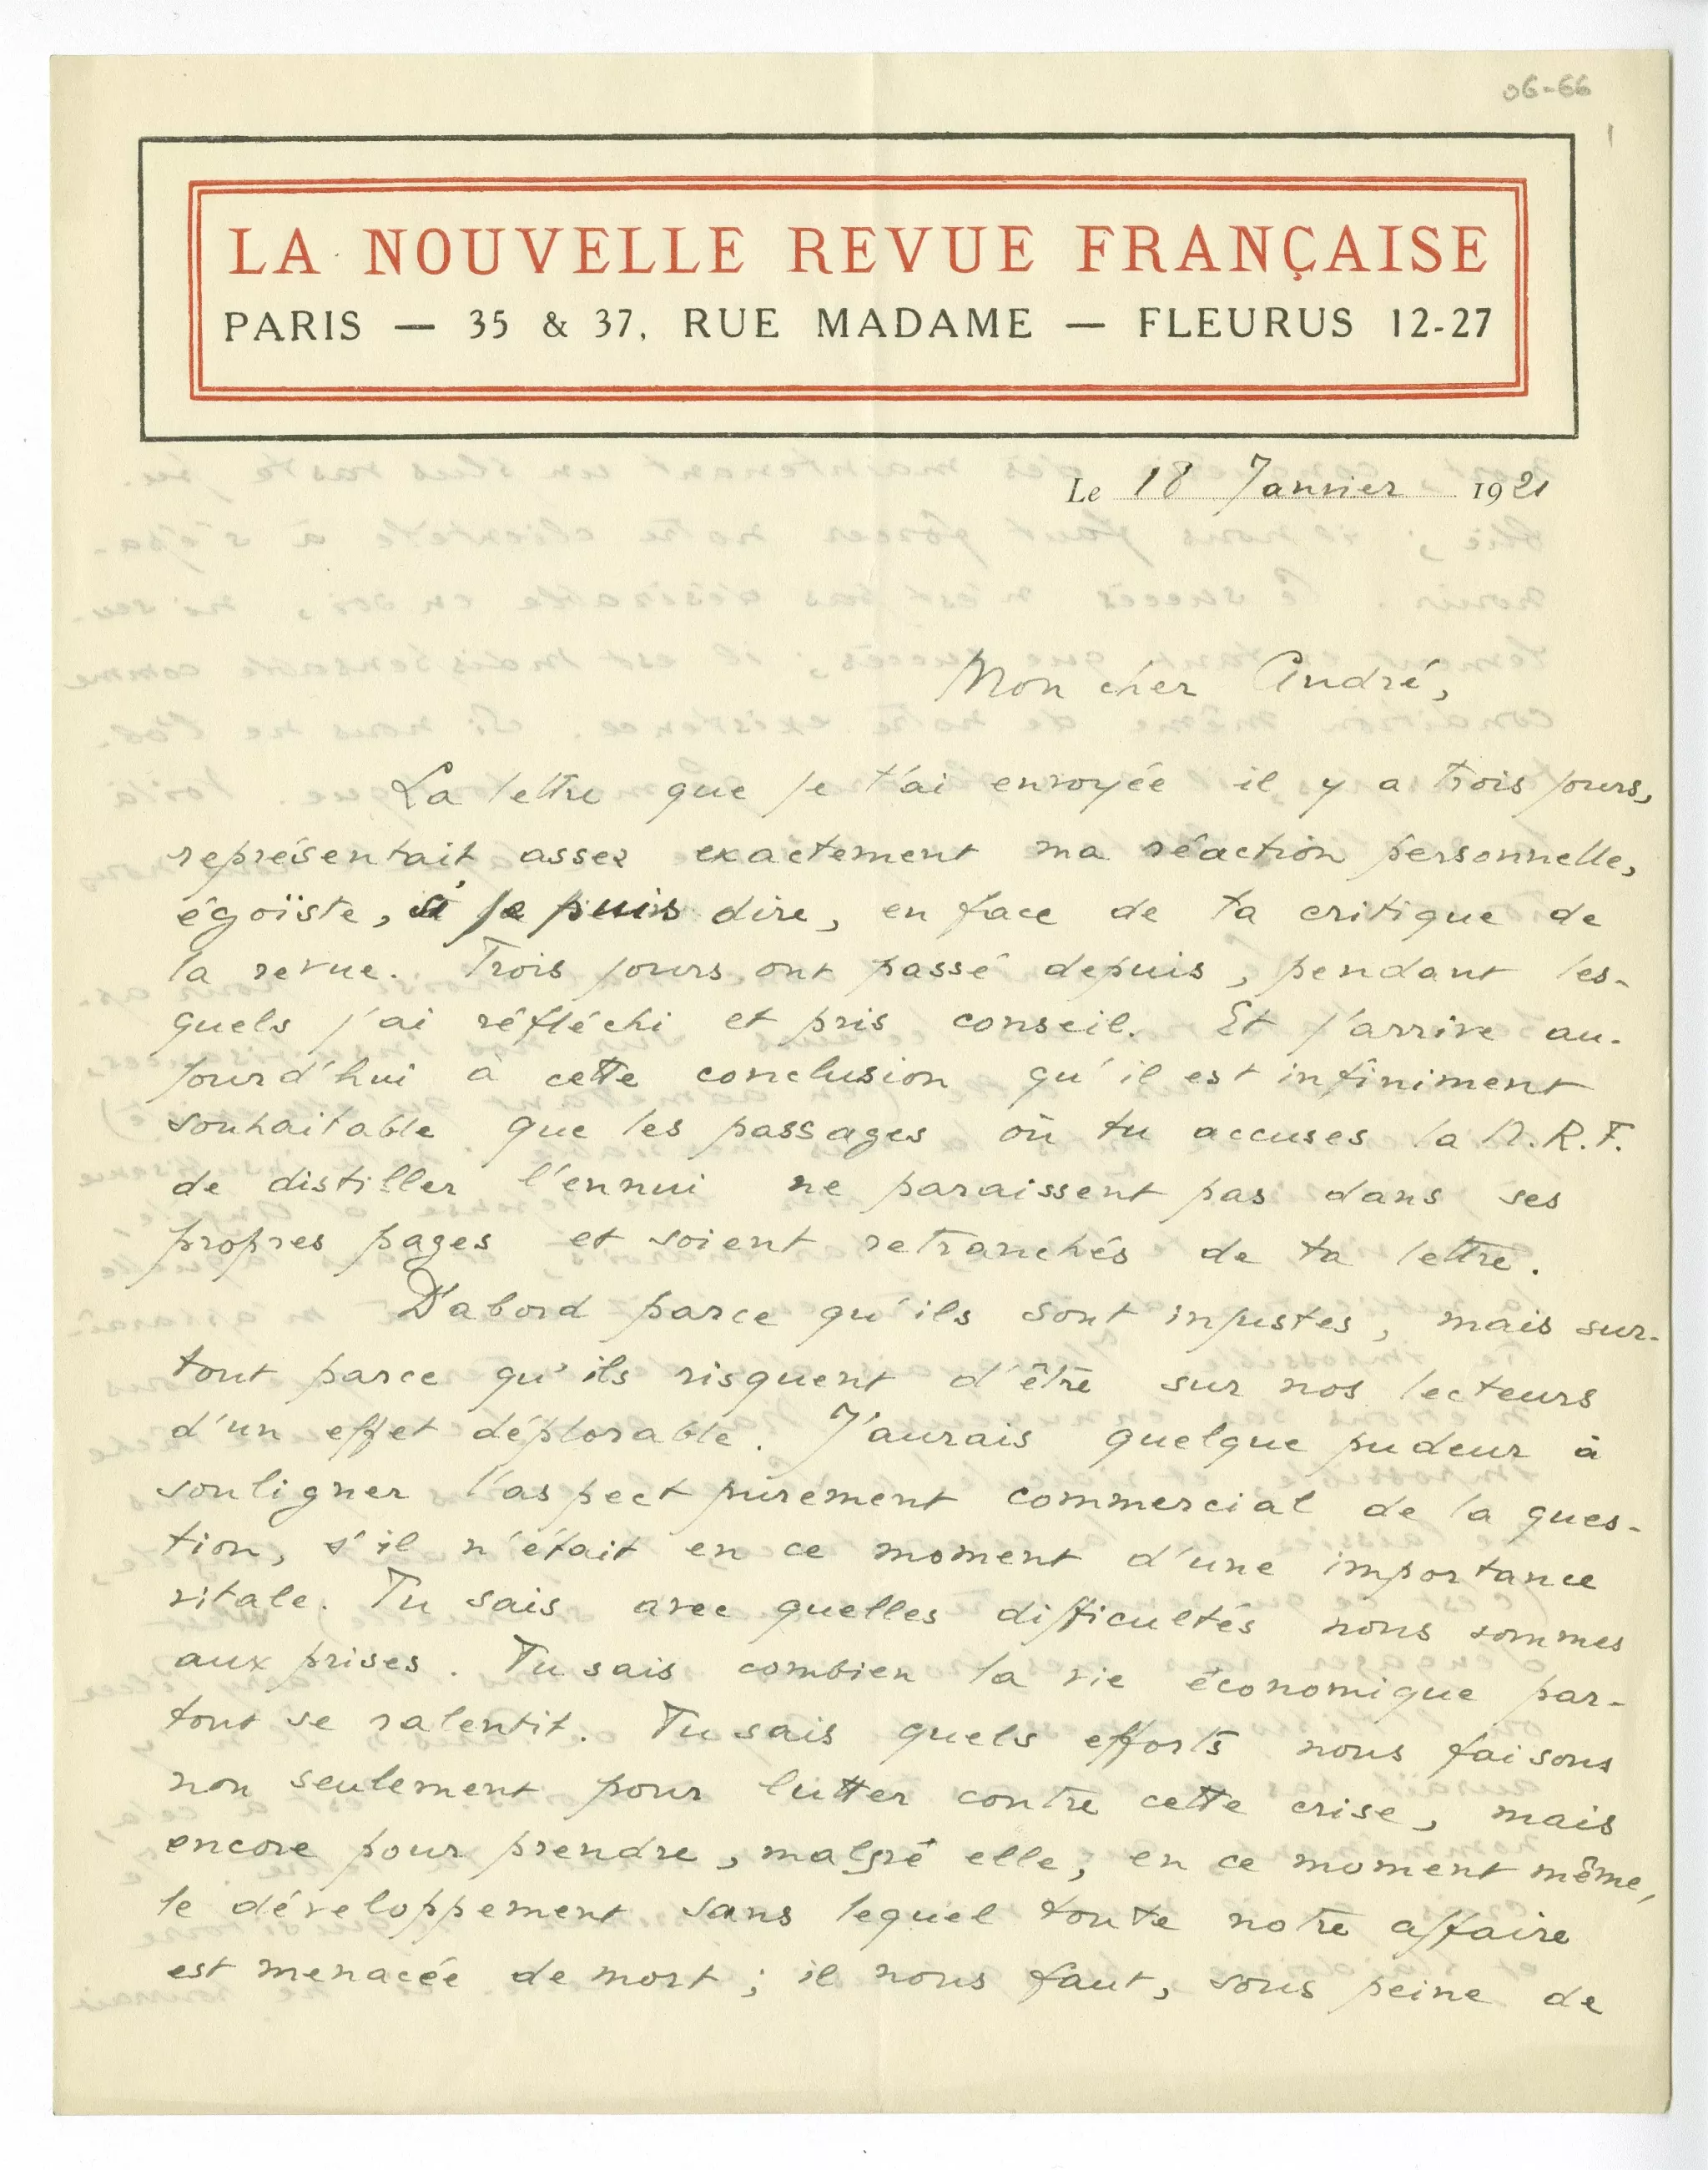 06-66
LA NOUVELLE REVUE FRANÇAISE
PARIS — 35 & 37, RUE MADAME — FLEURUS 12-27
Le 18 Janvier 1921
Mon cher André,
La lettre que je t'ai envoyée il y a trois jours,
représentait assez exactement ma réaction personnelle,
égoïste, si je puis dire, en face de ta critique de
la revue. Trois jours ont passé depuis, pendant les-
quels j'ai réfléchi et pris conseil. Et j'arrive au-
jourd'hui à cette conclusion qu'il est infiniment
souhaitable que les passages où tu accuses la N.R.F.
de distiller l'ennui ne paraissent pas dans ses
propres pages et soient retranchés de ta lettre.
D'abord parce qu'ils sont injustes, mais sur-
tout parce qu'ils risquent d'être sur nos lecteurs
d'un effet déplorable. J'aurais quelque pudeur à
souligner l'aspect purement commercial de la ques-
tion, s'il n'était en ce moment d'une importance
vitale. Tu sais avec quelles difficultés nous sommes
aux prises. Tu sais combien la vie économique par-
tout se ralentit. Tu sais quels efforts nous faisons
non seulement pour lutter contre cette crise, mais
encore pour prendre, malgré elle, en ce moment même,
le développement sans lequel toute notre affaire
est menacée de mort ; il nous faut, sous peine de